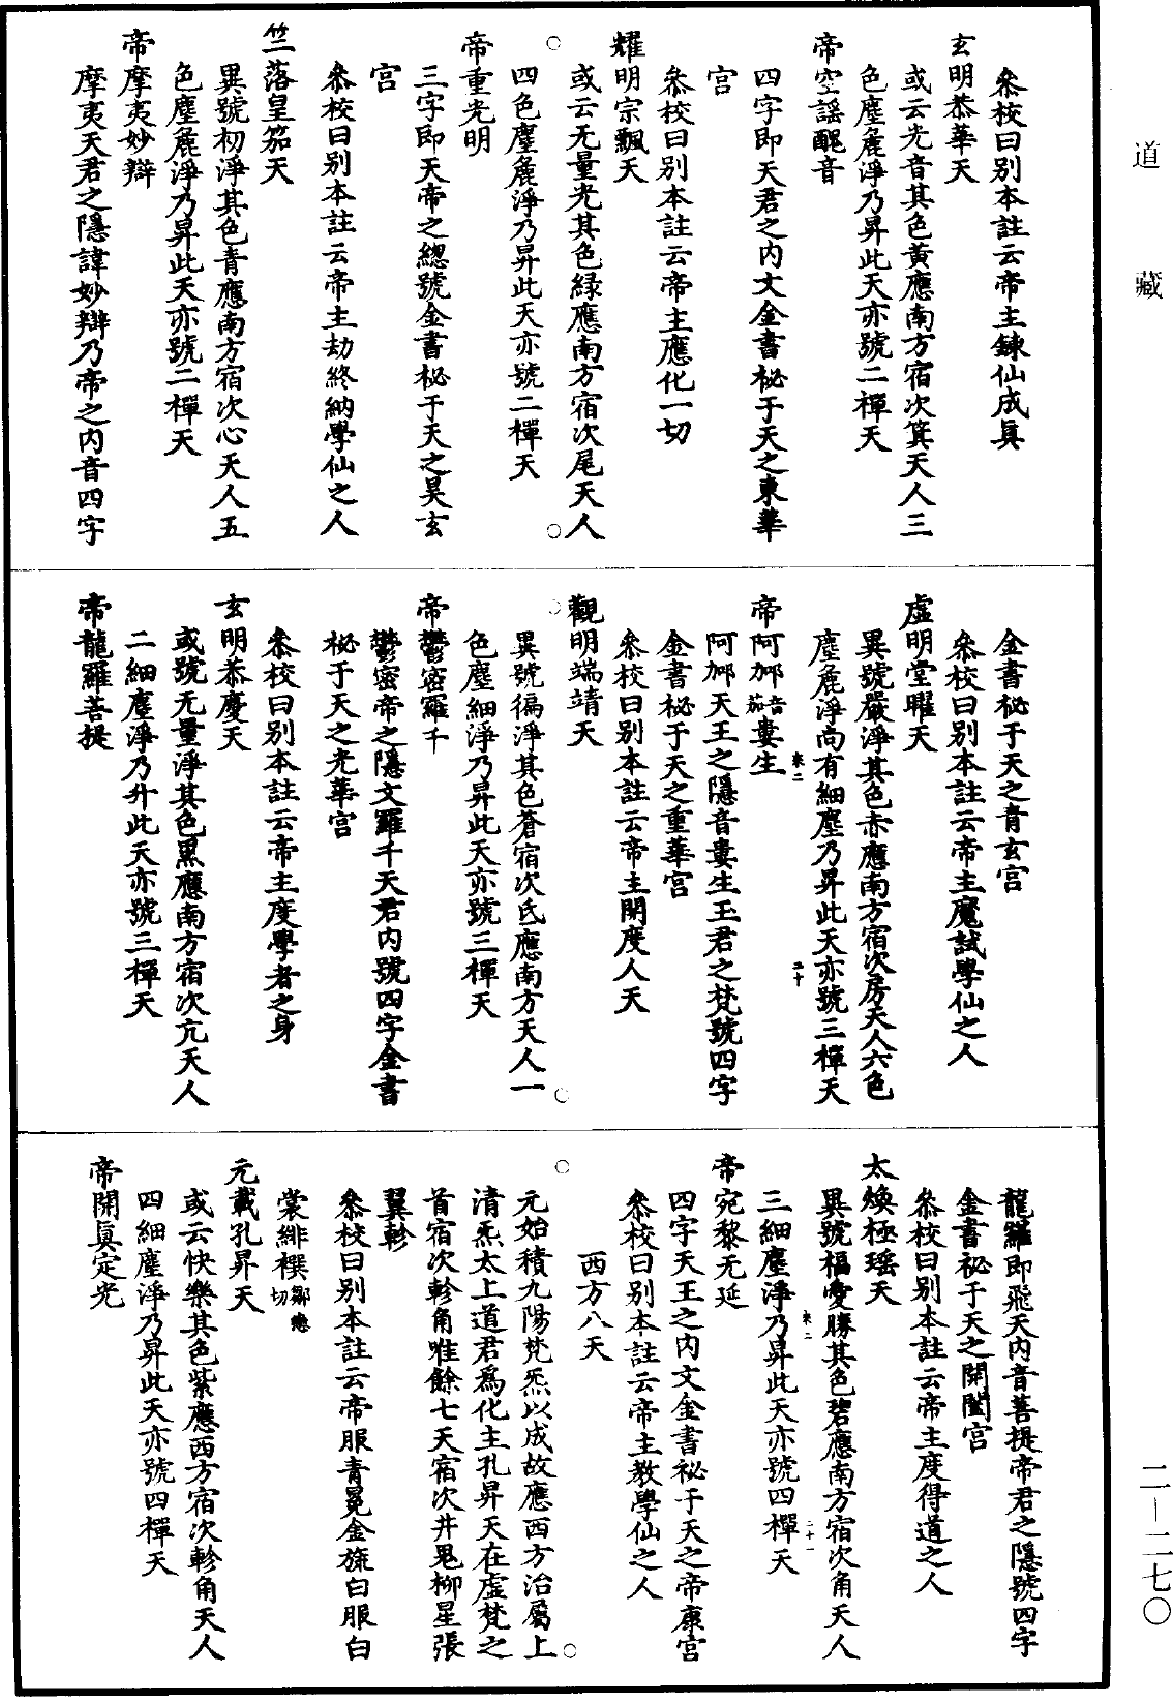 道藏
二—二七〇
叅校曰别本註云帝主鍊仙成真
玄明恭華天
或云光音其色黄應南方宿次箕天人三
色塵麁淨乃昇此天亦號二禪天
帝空謡醜音
四字即天君之内文金書祕于天之東華
宫
叅校曰别本註云帝主應化一切
耀明宗飄天
或云无量光其色緑應南方宿次尾天人
四色塵麁淨乃昇此天亦號二禪天
帝重光明
三字即天帝之總號金書祕于天之昊玄
宫
叅校曰别本註云帝主劫終納學仙之人
竺落皇笳天
異號初淨其色青應南方宿次心天人五
色塵麁淨乃昇此天亦號二禪天
帝摩夷妙辯
摩夷天君之隱諱妙辯乃帝之内音四字
金書祕于天之青玄宫
叅校曰别本註云帝主魔試學仙之人
虚明堂曜天
異號嚴淨其色赤應南方宿次房天人六色
塵麁淨尚有細塵乃昇此天亦號三禪天
卷二
二十
帝阿那音茄婁生
阿那天王之隱音婁生玉君之梵號四字
金書祕于天之重華宫
叅校曰别本註云帝主開度人天
觀明端靖天
異號徧淨其色蒼宿次氐應南方天人一
色塵細淨乃昇此天亦號三禪天
帝鬱密羅千
鬱密帝之隱文羅千天君内號四字金書
祕于天之光華宫
叅校曰别本註云帝主度學者之身
玄明恭慶天
或號无量淨其色黑應南方宿次亢天人
二細塵淨乃升此天亦號三禪天
帝龍羅菩提
龍羅即飛天内音菩提帝君之隱號四字
金書祕于天之開闔宫
叅校曰别本註云帝主度得道之人
太煥極瑶天
異號福愛勝其色碧應南方宿次角天人
卷二
二十一
三細塵淨乃昇此天亦號四禪天
帝宛黎无延
四字天王之内文金書祕于天之帝康宫
叅校曰别本註云帝主教學仙之人
西方八天
元始積九陽梵炁以成故應西方治屬上
清炁太上道君爲化主孔昇天在虚梵之
首宿次軫角唯餘七天宿次井鬼柳星張
翼軫
叅校曰别本註云帝服青冕金旒白服白
裳緋襈鄒戀切
元載孔昇天
或云快樂其色紫應西方宿次軫角天人
四細塵淨乃昇此天亦號四禪天
帝開真定光